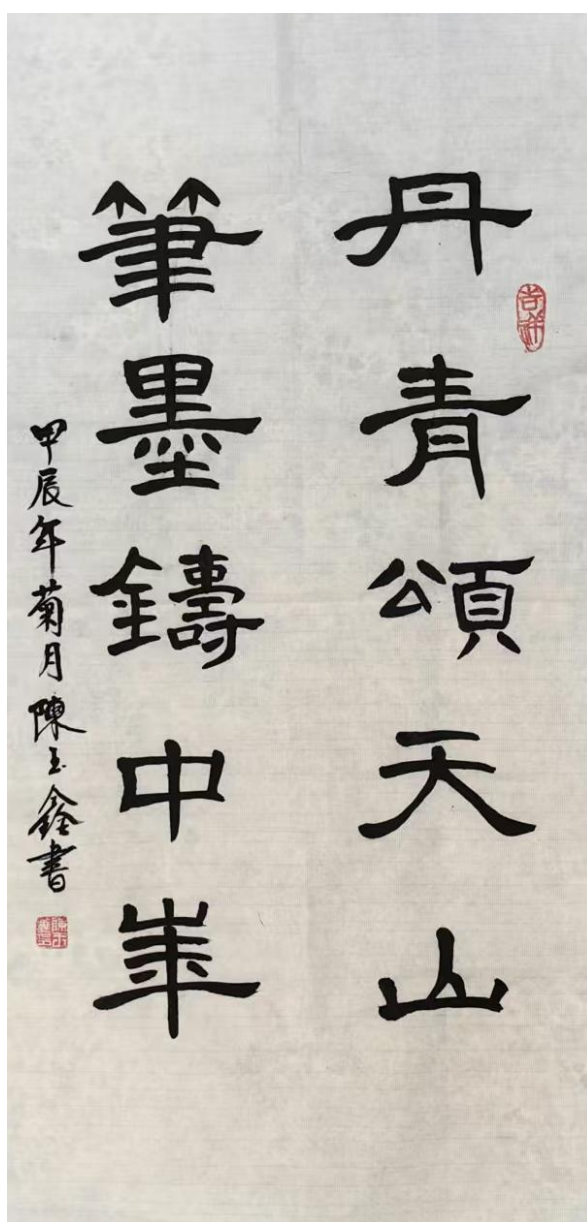 吉祥
丹青頌天山
筆墨鑄中華
甲辰年菊月陳玉鑫書